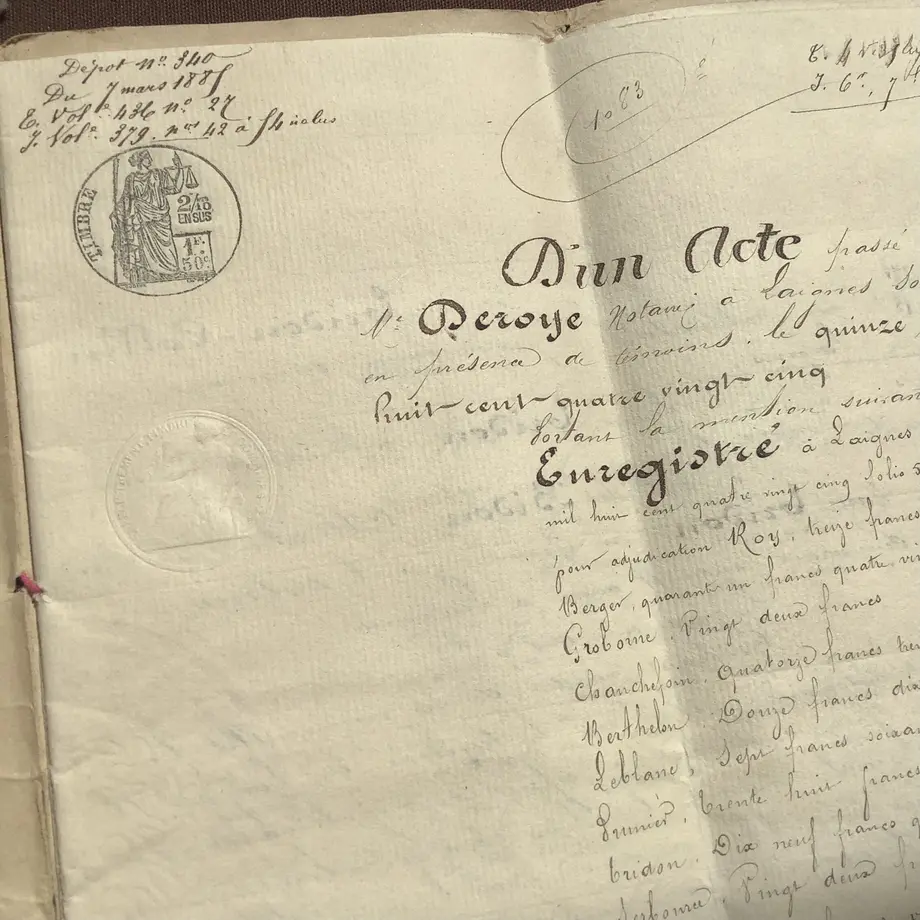 Dépot nº 340
Du 7 mars 1885
E. Vol^e 436 nº 27
J. Vol^e 379. nos 42 à 54 inclus
1083
TIMBRE
2/10
EN SUS
1F.
50c.
D'un Acte passé
Me Deroye Notaire à Laignes
en présence de témoins, le quinze
huit cent quatre vingt cinq
Portant la mention suivan
Enregistré à Laignes
mil huit cent quatre vingt cinq folio
pour adjudication Roy, treize francs
Berger, quarant un francs quatre vin
Groborne, Vingt deux francs
Chanchefoin, Quatorze francs
Berthelon Douze francs dix
Leblanc, Sept francs soixan
Prunier, Trente huit francs
Tridon, Dix neuf francs
Vingt deux